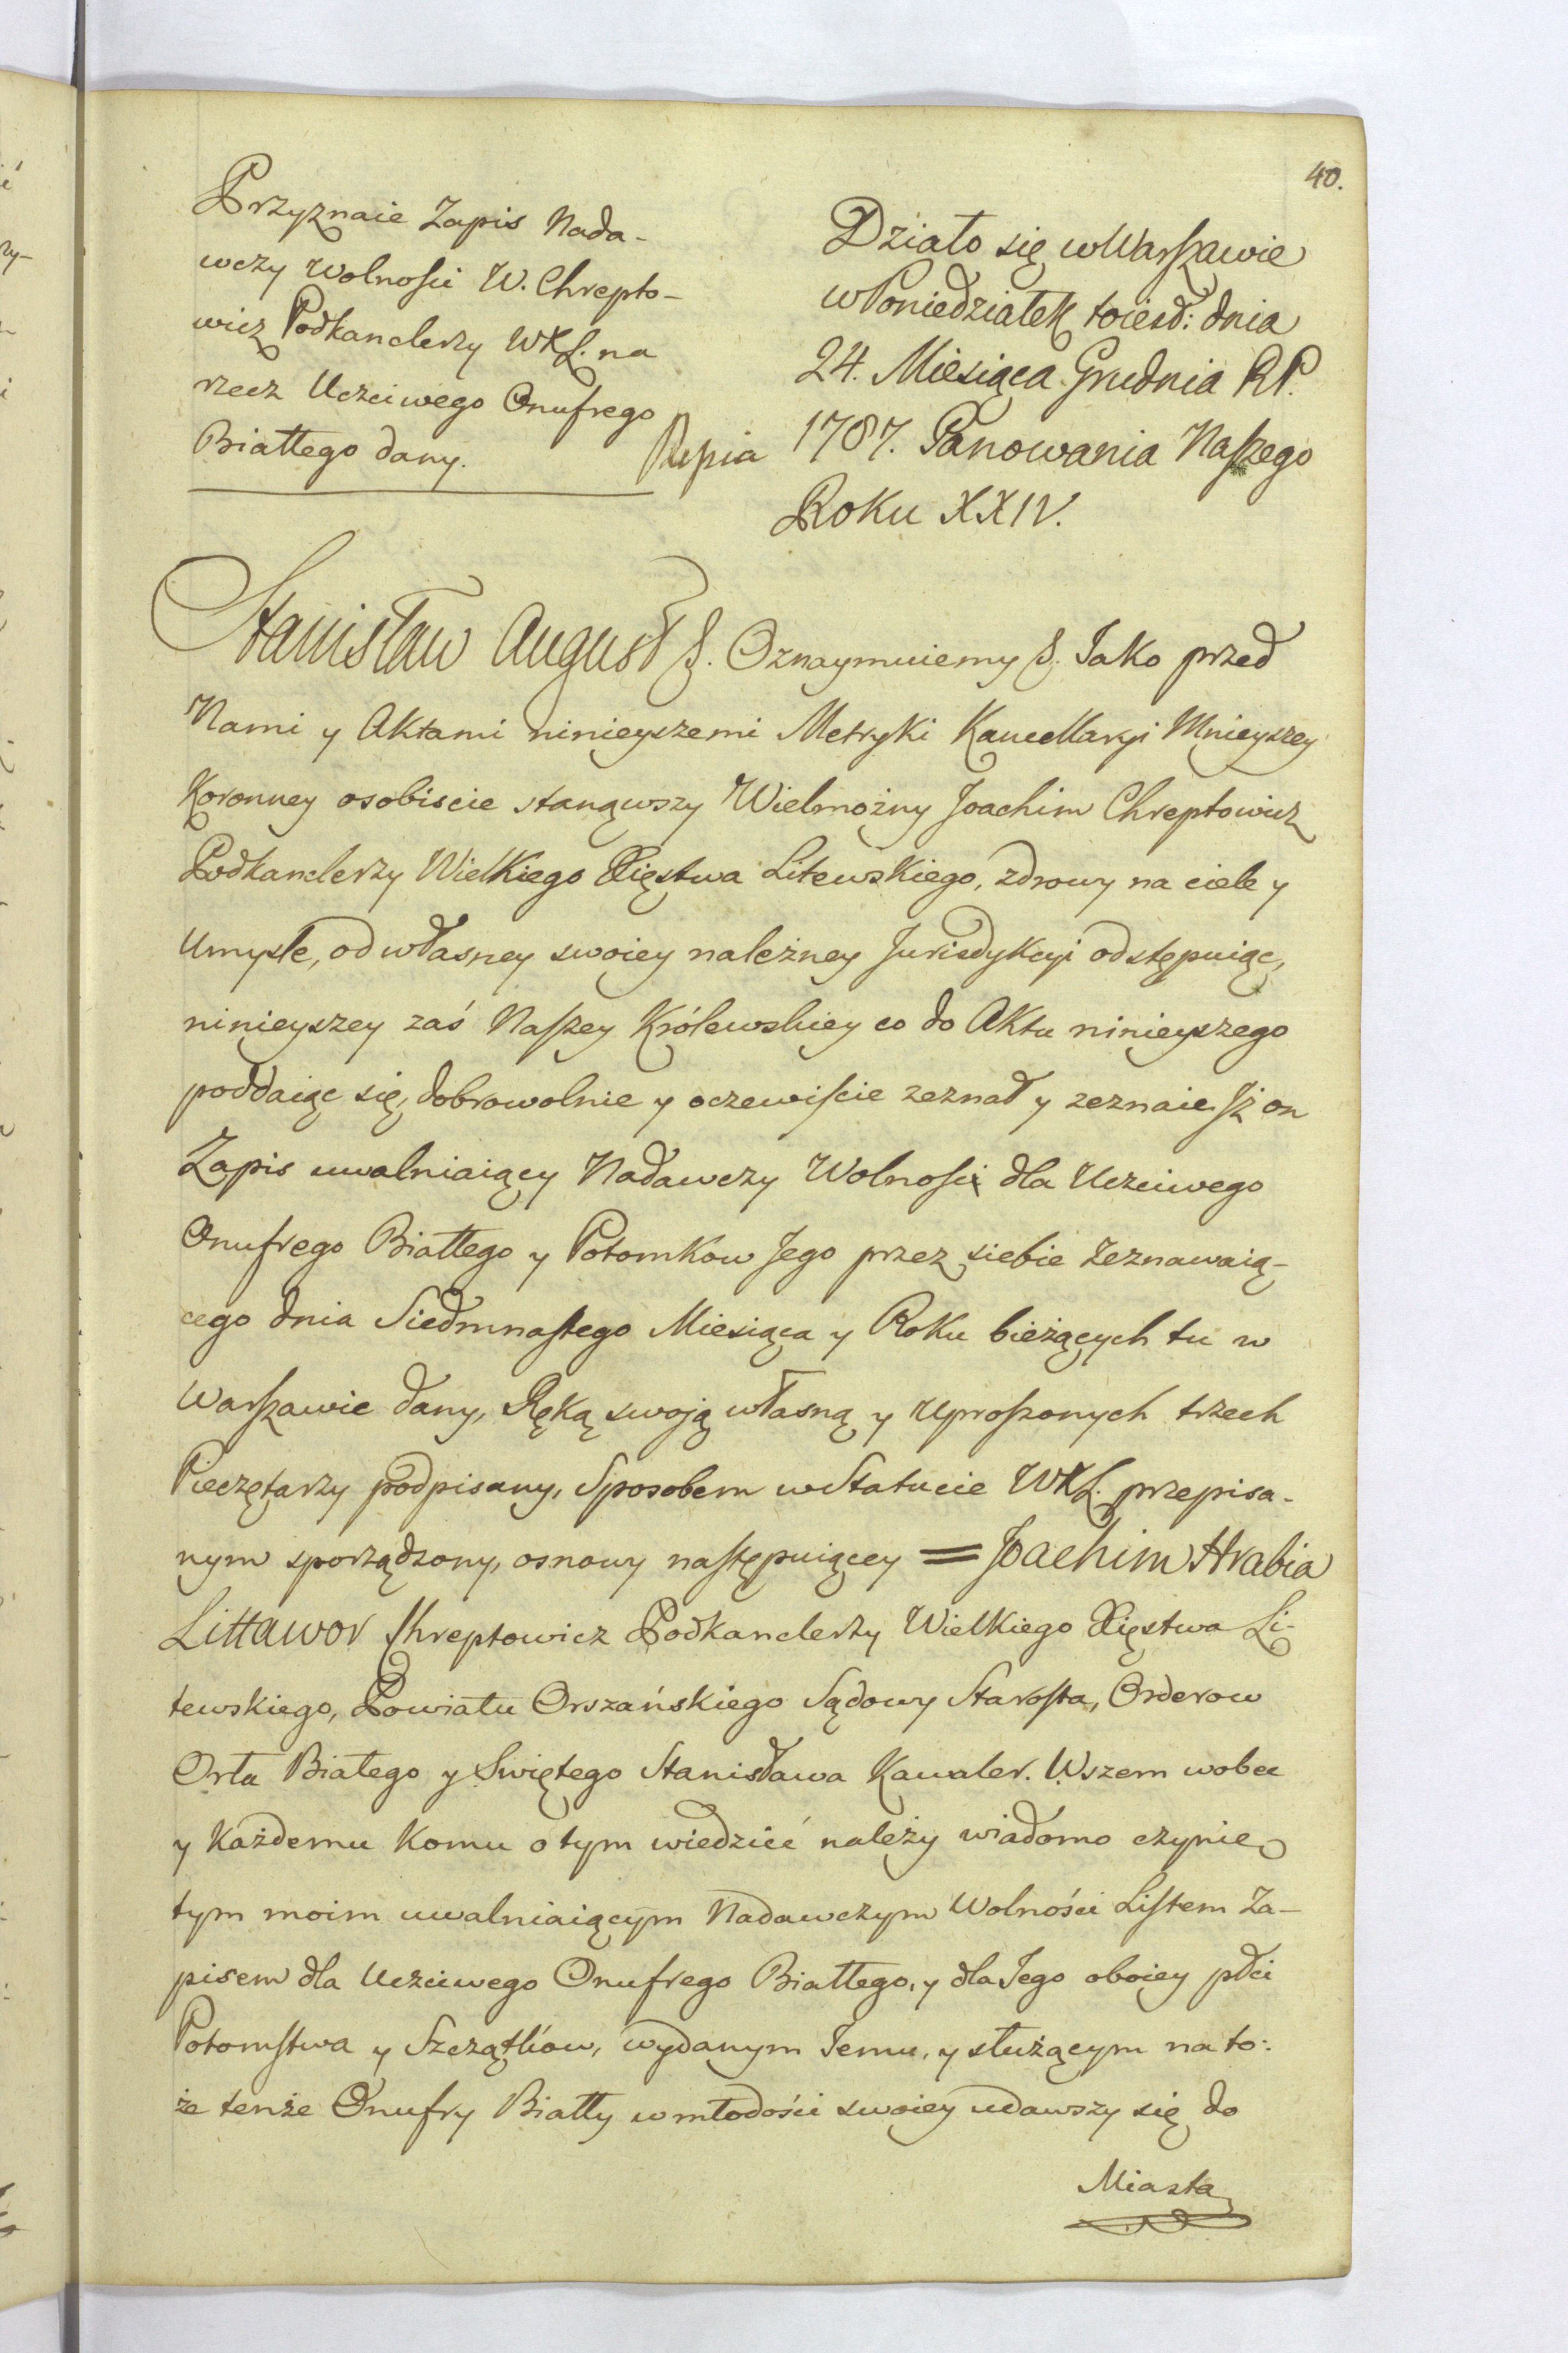 40.
Przyznaie Zapis Nada-
wczy Wolności W. Chrepto-
wicz Podkanclerzy WXL. na
rzecz Uczciwego Onufrego
Białłego dany.
Działo się w Warszawie
w Poniedziałek toiesd: dnia
24. Miesiąca Grudnia RP.
1787. Panowania Naszego
Roku XXIV.
Stanisław August &. Oznaymuiemy &. Jako przed
Nami y Aktami ninieyszemi Metryki Kancellaryi Mnieyszey
Koronney osobiscie stanąwszy Wielmożny Joachim Chreptowicz
Podkanclerzy Wielkiego Xięstwa Litewskiego, zdrowy na ciele y
Umyśle, od własney swoiey należney Jurisdykcyi odstępuiąc,
ninieyszey zaś Naszey Królewskiey co do Aktu ninieyszego
poddaiąc się, dobrowolnie y oczewiście zeznał y zeznaie Jż on
Zapis uwalniaiący Nadawczy Wolności dla Uczciwego
Onufrego Białłego y Potomkow Jego przez siebie Zeznawaią-
cego dnia Siedmnastego Miesiąca y Roku bieżących tu w
Warszawie dany, Ręką swoją własną y Uproszonych trzech
Pieczętarzy podpisany, Sposobem w Statucie WXL. przepisa-
nym sporządzony, osnowy następuiącey = Joachim Hrabia
Littawor Chreptowicz Podkanclerzy Wielkiego Xięstwa Li-
tewskiego, Powiatu Orszańskiego Sądowy Starosta, Orderow
Orła Białego y Swiętego Stanisława Kawaler. Wszem wobec
y Każdemu Komu o tym wiedzieć należy wiadomo czynię
tym moim uwalniaiącym Nadawczym Wolności Listem Za-
pisem dla Uczciwego Onufrego Białłego, y dla Jego oboiey płci
Potomstwa y Szczątków, wydanym Jemu, y służącym na to:
że tenże Onufry Białły w młodości swoiey udawszy się do
Miasta